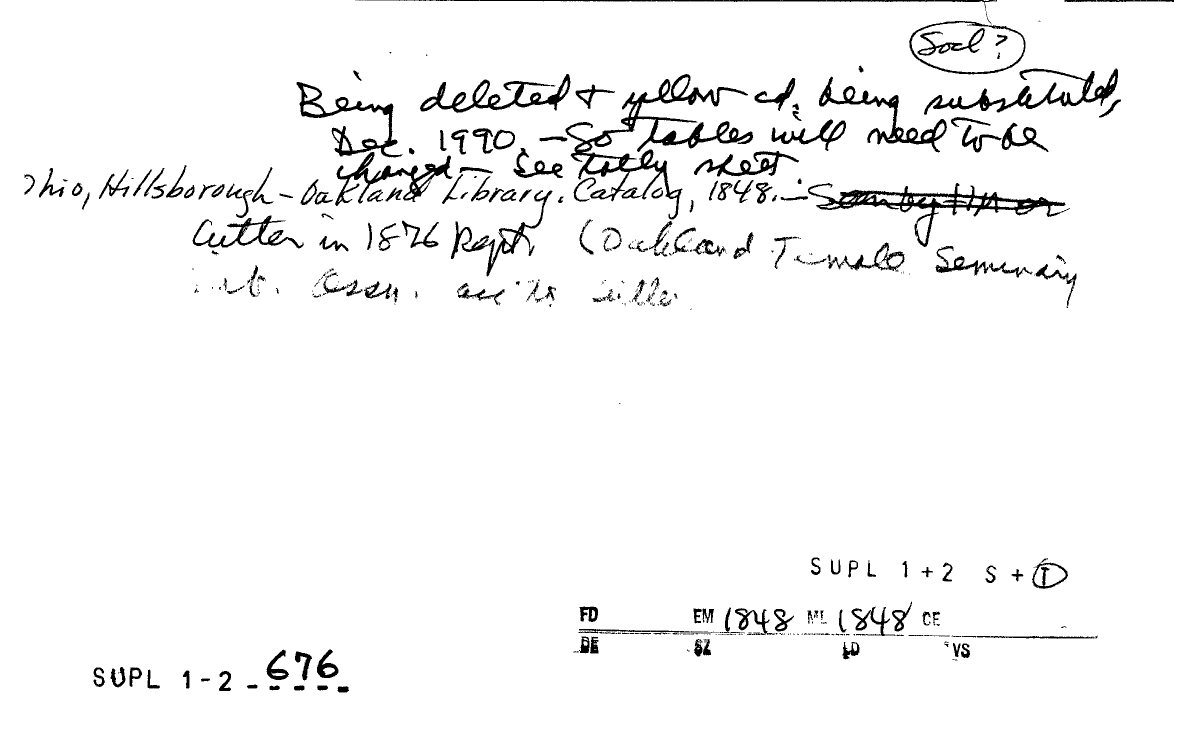 Socl?
Being deleted + yellow cd. being substituted,
Dec. 1990. — So tables will need to be
changed — See tally sheet
Ohio, Hillsborough - Oakland Library. Catalog, 1848. —
Cutter in 1876 Rept. (Oakland Female Seminary
Assn. acc to
SUPL 1+2 S + T
FD EM 1848 ML 1848 CE
DE SZ LD VS
SUPL 1-2 676